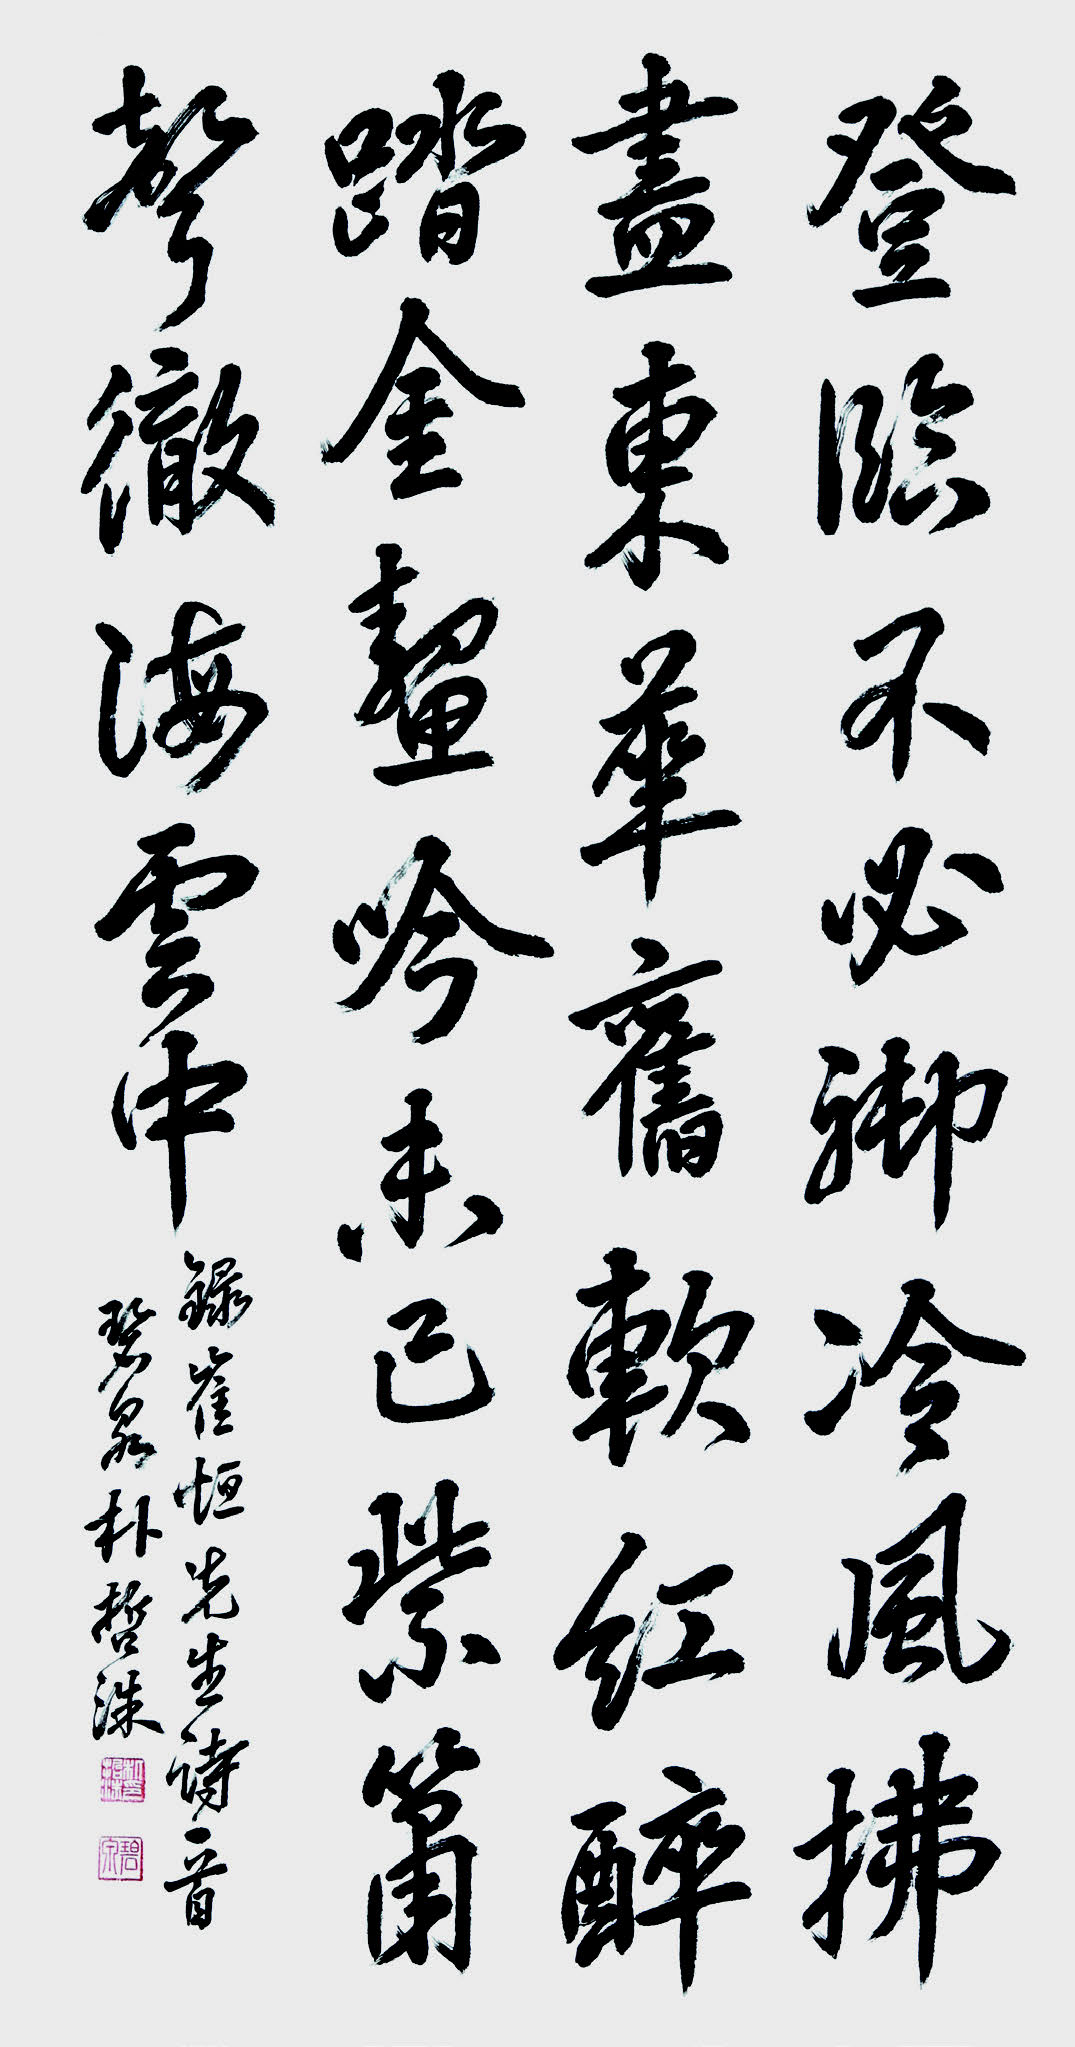 登臨不必御冷風拂
盡東華舊軟紅醉
踏金鰲吟未已紫簫
聲徹海雲中
錄崔恒先生詩一首
碧泉朴哲洙
碧泉